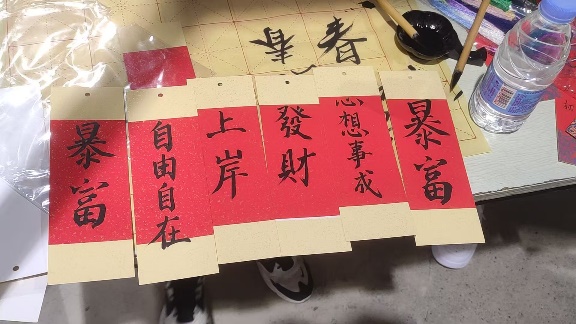 春
春
暴富
自由自在
上岸
發財
心想事成
暴富